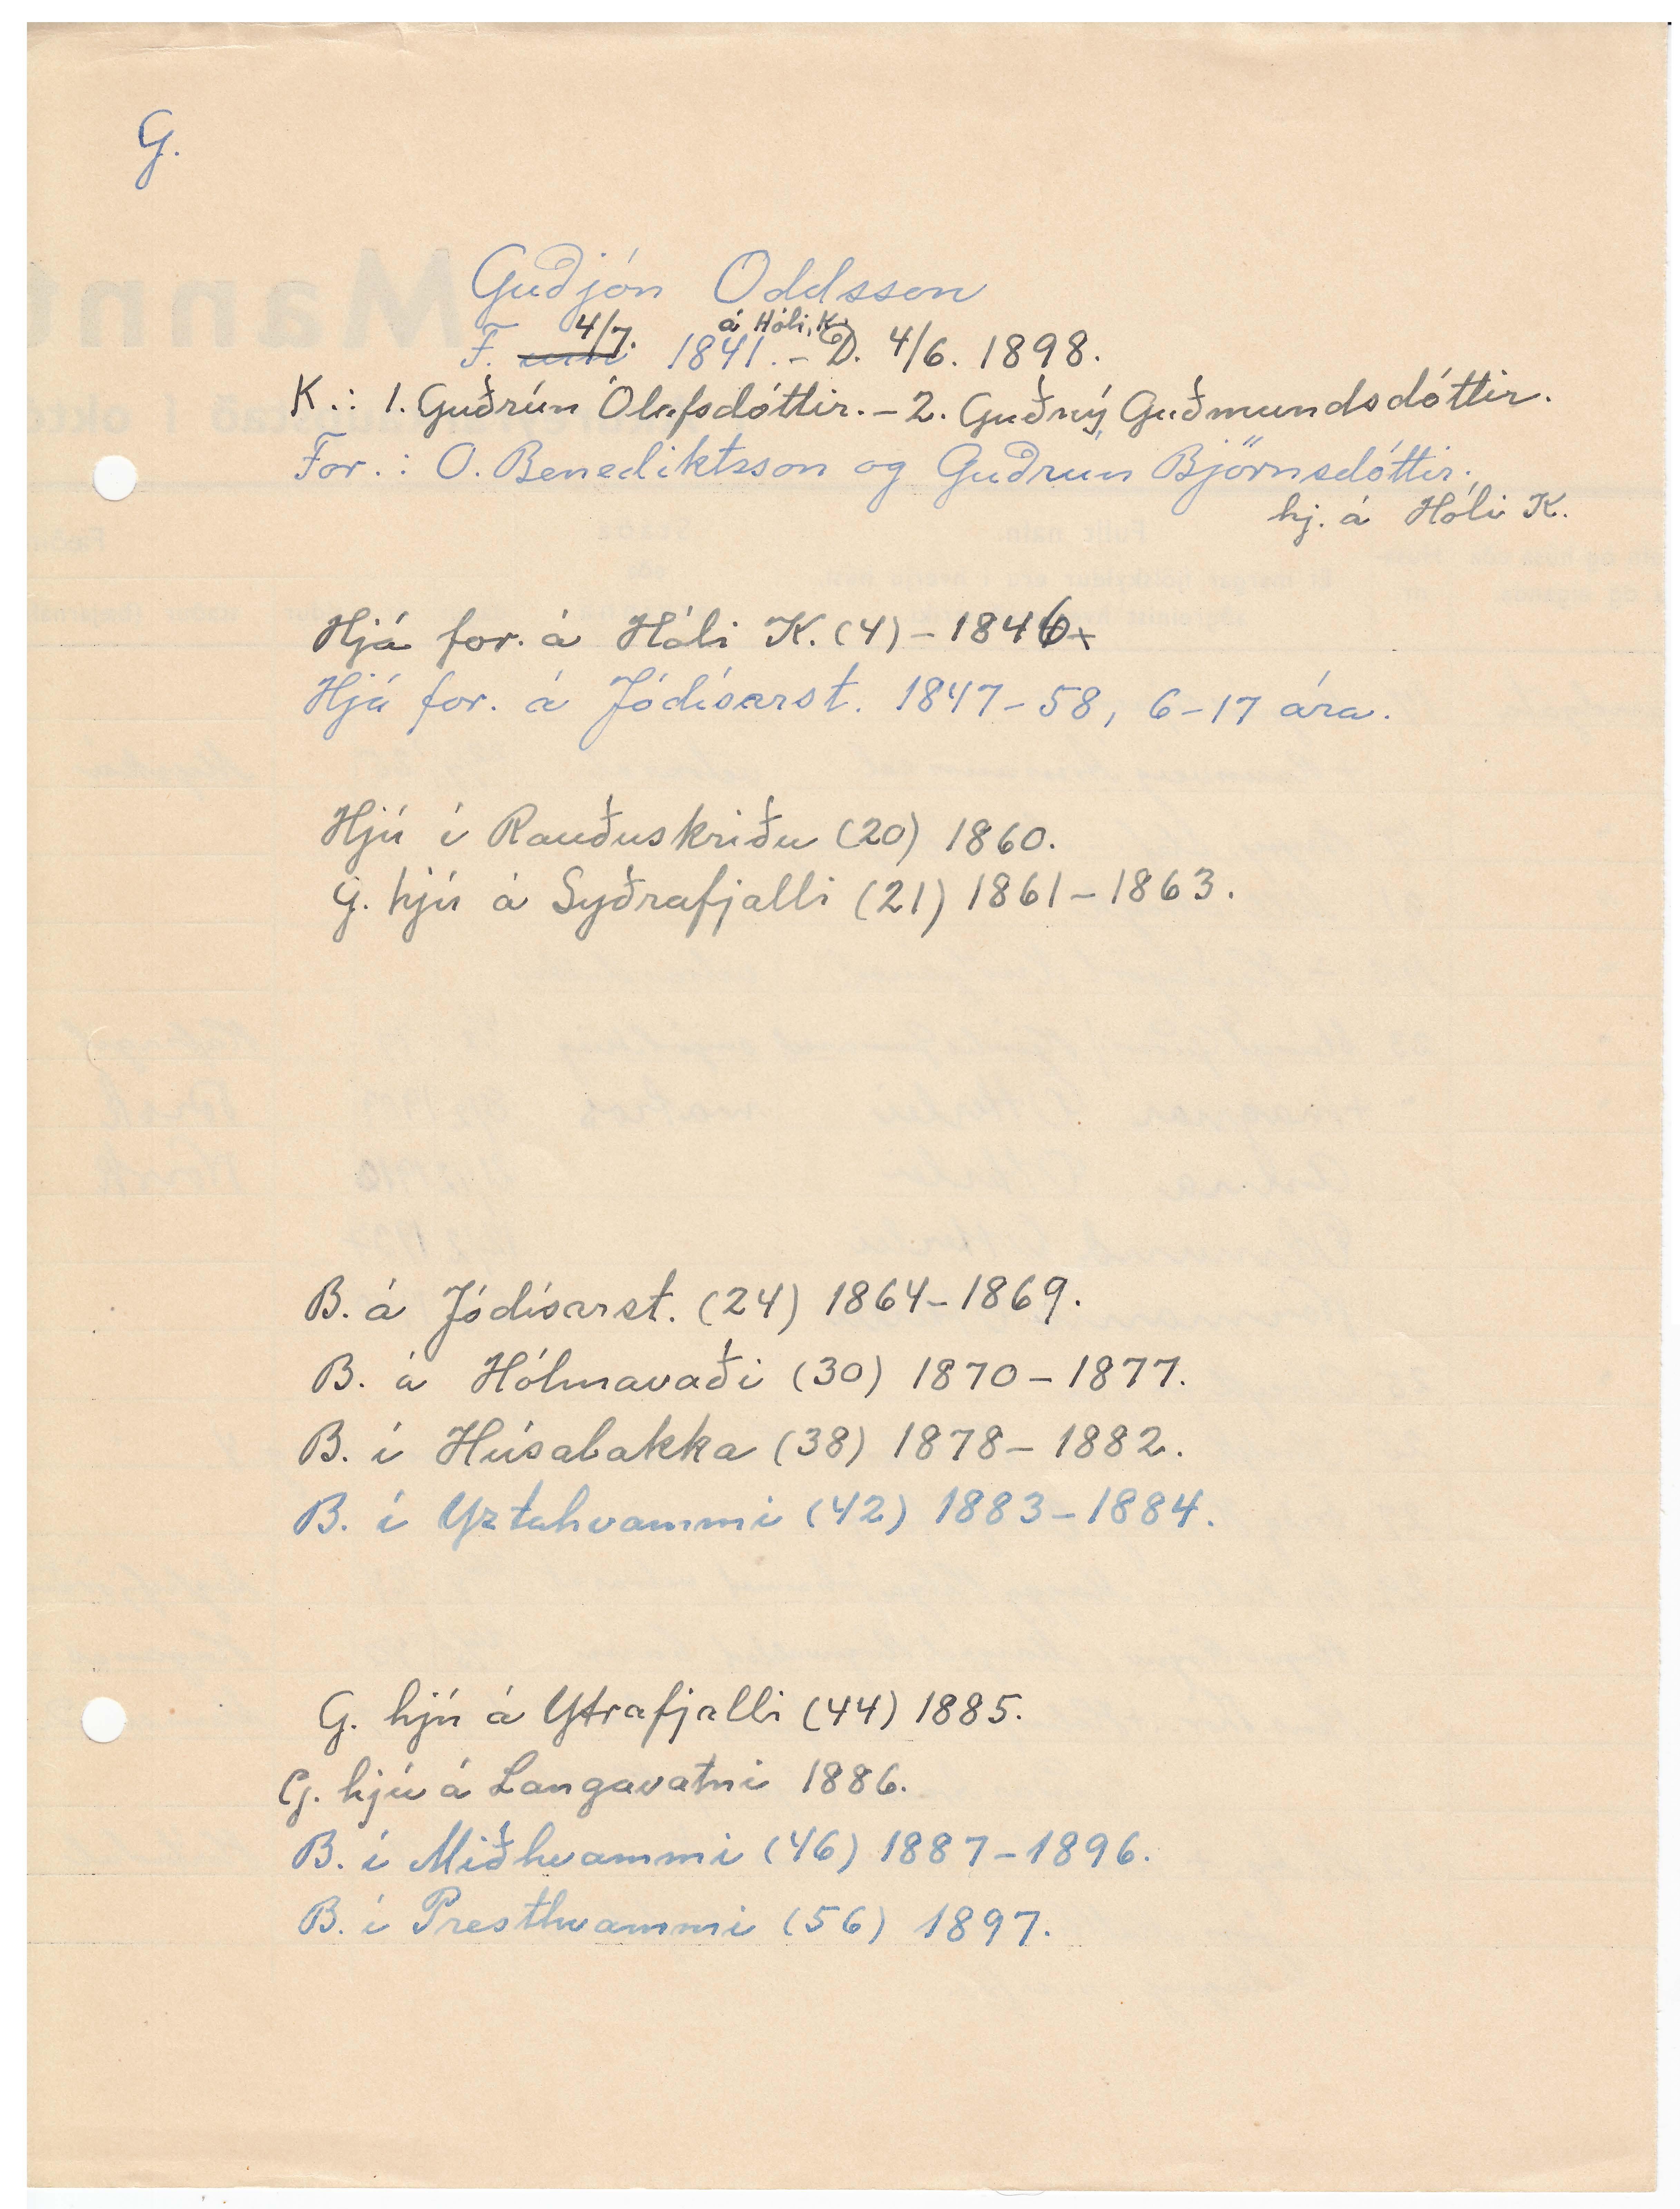 G.
Guðjón Oddsson
F. 4/7. 1841. á Hóli, K. - D. 4/6. 1898.
K.: 1. Guðrún Ólafsdóttir. - 2. Guðný Guðmundsdóttir.
For.: O. Benediktsson og Guðrún Björnsdóttir,
hj. á Hóli K.
Hjá for. á Hóli K. (4) - 1846
Hjá for. á Jódísarst. 1847-58, 6-17 ára.
Hjú í Rauðuskriðu (20) 1860.
G. hjú á Syðrafjalli (21) 1861-1863.
B. á Jódísarst. (24) 1864-1869.
B. á Hólmavaði (30) 1870-1877.
B. í Húsabakka (38) 1878-1882.
B. í Yztahvammi (42) 1883-1884.
G. hjú á Ytrafjalli (44) 1885.
G. hjú á Langavatni 1886.
B. í Miðhvammi (46) 1887-1896.
B. í Presthvammi (56) 1897.